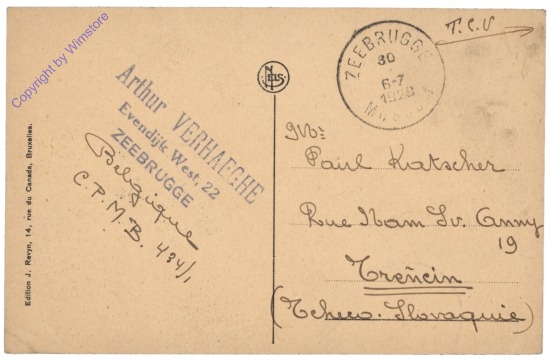 Copyright by Wimstore
Edition J. Revyn, 14, rue du Canada, Bruxelles.
Arthur VERHAEGHE
Evendijk West, 22
ZEEBRUGGE
Belgique
C.P.M.B. 434/1
ZEEBRUGGE
30
6-7
1928
T.C.V
Mr:
Paul Katscher
Rue Nam Sv. Anny
19
Trencin
(Tcheco-Slovaquie)